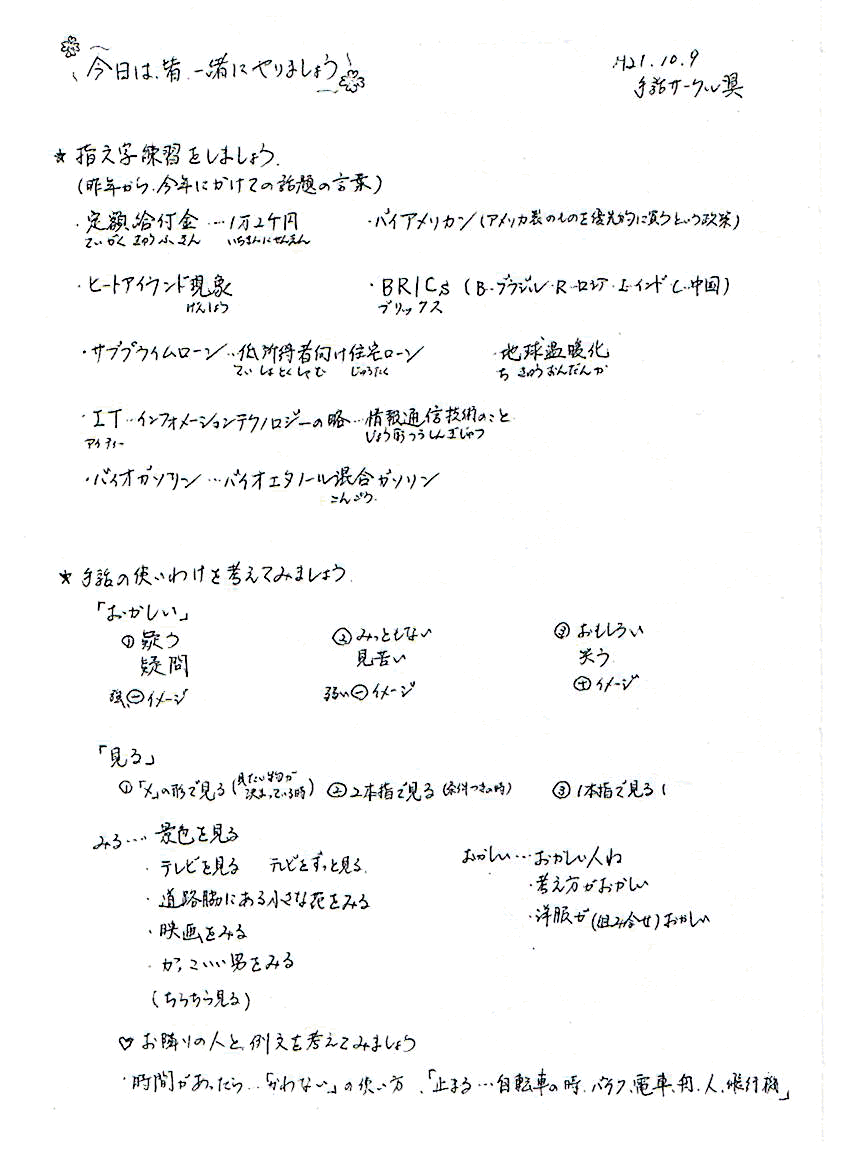 今日は、皆、一緒にやりましょう
H21.10.9
手話サークル翼
★ 指文字練習をしましょう.
(昨年から、今年にかけての話題の言葉)
・定額給付金 …1万2千円 ・バイアメリカン(アメリカ製のものを優先的に買うという政策)
ていがくきゅうふきん いちまんにせんえん
・ヒートアイランド現象 ・BRICs (B-ブラジル・R-ロシア・I-インド C-中国)
げんしょう ブリックス
・サブプライムローン…低所得者向け住宅ローン ・地球温暖化
ていしょとくしゃむ じゅうたく ちきゅうおんだんか
・IT…インフォメーションテクノロジーの略…情報通信技術のこと
アイティー じょうほうつうしんぎじゅつ
・バイオガソリン …バイオエタノール混合ガソリン
こんごう
★ 手話の使いわけを考えてみましょう.
「おかしい」
①疑う ②みっともない ③おもしろい
疑問 見苦い 笑う
強い㊀イメージ 弱い㊀イメージ ㊉イメージ
「見る」
①「メ」の形で見る(見たい物が決まっている時) ②2本指で見る(条件つきの時) ③1本指で見る(
みる… 景色を見る
・テレビを見る テレビをずっと見る.
・道路脇にある小さな花をみる
・映画をみる
・かっこいい男をみる
(ちらちら見る)
おかしい…おかしい人ね
・考え方がおかしい
・洋服が(組み合せ)おかしい
♡ お隣りの人と、例文を考えてみましょう
・時間があったら…「かわない」の使い方、「止まる…自転車の時、バイク、電車、舟、人、飛行機」